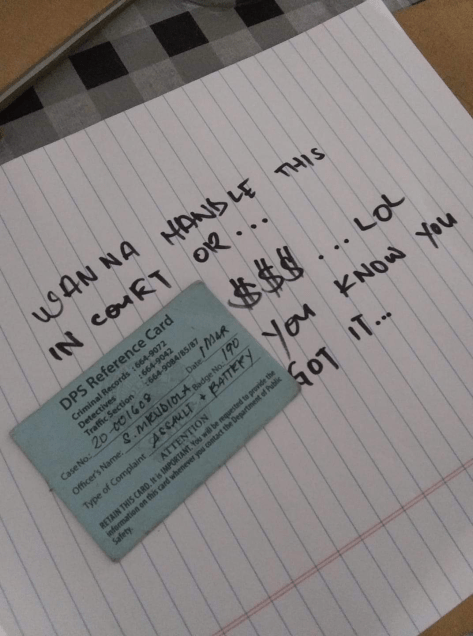 WANNA HANDLE THIS
IN COURT OR...
$$$ ... LOL
YOU KNOW YOU
GOT IT...
DPS Reference Card
Criminal Records : 664-9072
Detectives : 664-9042
Traffic Section : 664-9084/85/87
Case No: 20-001608 Date: 1 MAR
Officer's Name: S. MENDIOLA Badge No. 190
Type of Complaint ASSAULT + BATTERY
ATTENTION
RETAIN THIS CARD. It is IMPORTANT. You will be requested to provide the
information on this card whenever you contact the Department of Public
Safety.